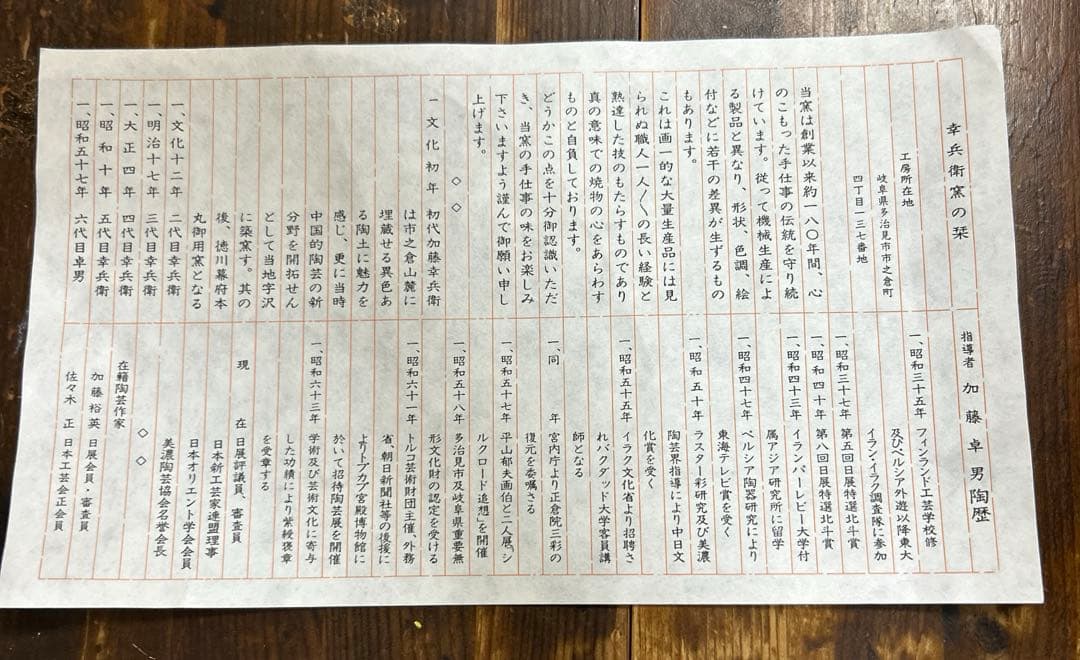 幸兵衛窯の栞
工房所在地
岐阜県多治見市市之倉町
四丁目一三七番地
当窯は創業以来約一八〇年間、心
のこもった手仕事の伝統を守り続
けています。従って機械生産によ
る製品と異なり、形状、色調、絵
付などに若干の差異が生ずるもの
もあります。
これは画一的な大量生産品には見
られぬ職人一人〳〵の長い経験と
熟達した技のもたらすものであり
真の意味での焼物の心をあらわす
ものと自負しております。
どうかこの点を十分御認識いただ
き、当窯の手仕事の味をお楽しみ
下さいますよう謹んで御願い申し
上げます。
◇ ◇
一 文化初年 初代加藤幸兵衛
は市之倉山麓に
埋蔵せる異色あ
る陶土に魅力を
感じ、更に当時
中国的陶芸の新
分野を開拓せん
として当地字沢
に築窯す。其の
後、徳川幕府本
丸御用窯となる
一、文化十二年 二代目幸兵衛
一、明治十七年 三代目幸兵衛
一、大正四年 四代目幸兵衛
一、昭和十年 五代目幸兵衛
一、昭和五十七年 六代目卓男
指導者 加藤卓男陶歴
一、昭和三十五年 フィンランド工芸学校修
及びペルシア外遊以降東大
イラン・イラク調査隊に参加
一、昭和三十七年 第五回日展特選北斗賞
一、昭和四十年 第八回日展特選北斗賞
一、昭和四十三年 イランパーレビー大学付
属アジア研究所に留学
一、昭和四十七年 ペルシア陶器研究により
東海テレビ賞を受く
一、昭和五十年 ラスター彩研究及び美濃
陶芸界指導により中日文
化賞を受く
一、昭和五十五年 イラク文化省より招聘さ
れ、バクダッド大学客員講
師となる
一、同年 宮内庁より正倉院三彩の
復元を委嘱さる
一、昭和五十七年 平山郁夫画伯と二人展。"シ
ルクロード追想"を開催
一、昭和五十八年 多治見市及岐阜県重要無
形文化財の認定を受ける
一、昭和六十一年 トルコ芸術財団主催、外務
省、朝日新聞社等の後援に
よりトプカプ宮殿博物館に
於いて招待陶芸展を開催
一、昭和六十三年 学術及び芸術文化に寄与
した功績により紫綬褒章
を受章する
現在 日展評議員、審査員
日本新工芸家連盟理事
日本オリエント学会会員
美濃陶芸協会名誉会長
◇ ◇
在籍陶芸作家
加藤裕英 日展会員・審査員
佐々木正 日本工芸会正会員